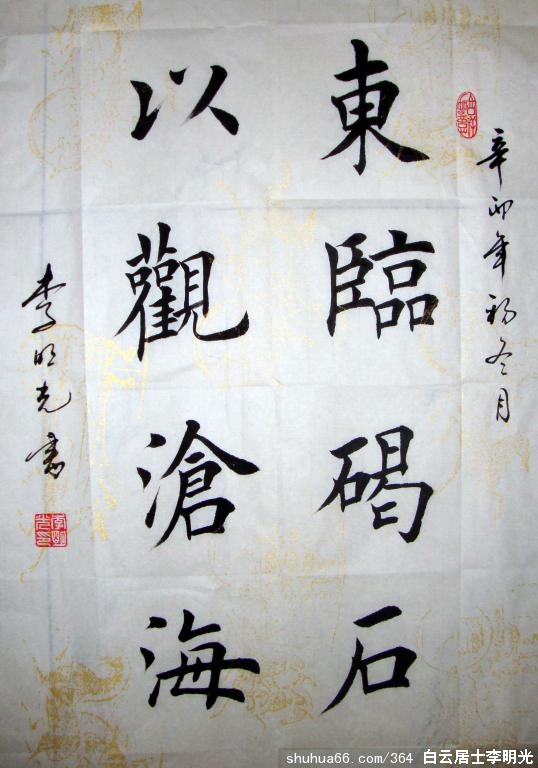 辛卯年初冬月
東臨碣石
以觀滄海
李明光書
shuhua66.com/364 白云居士李明光